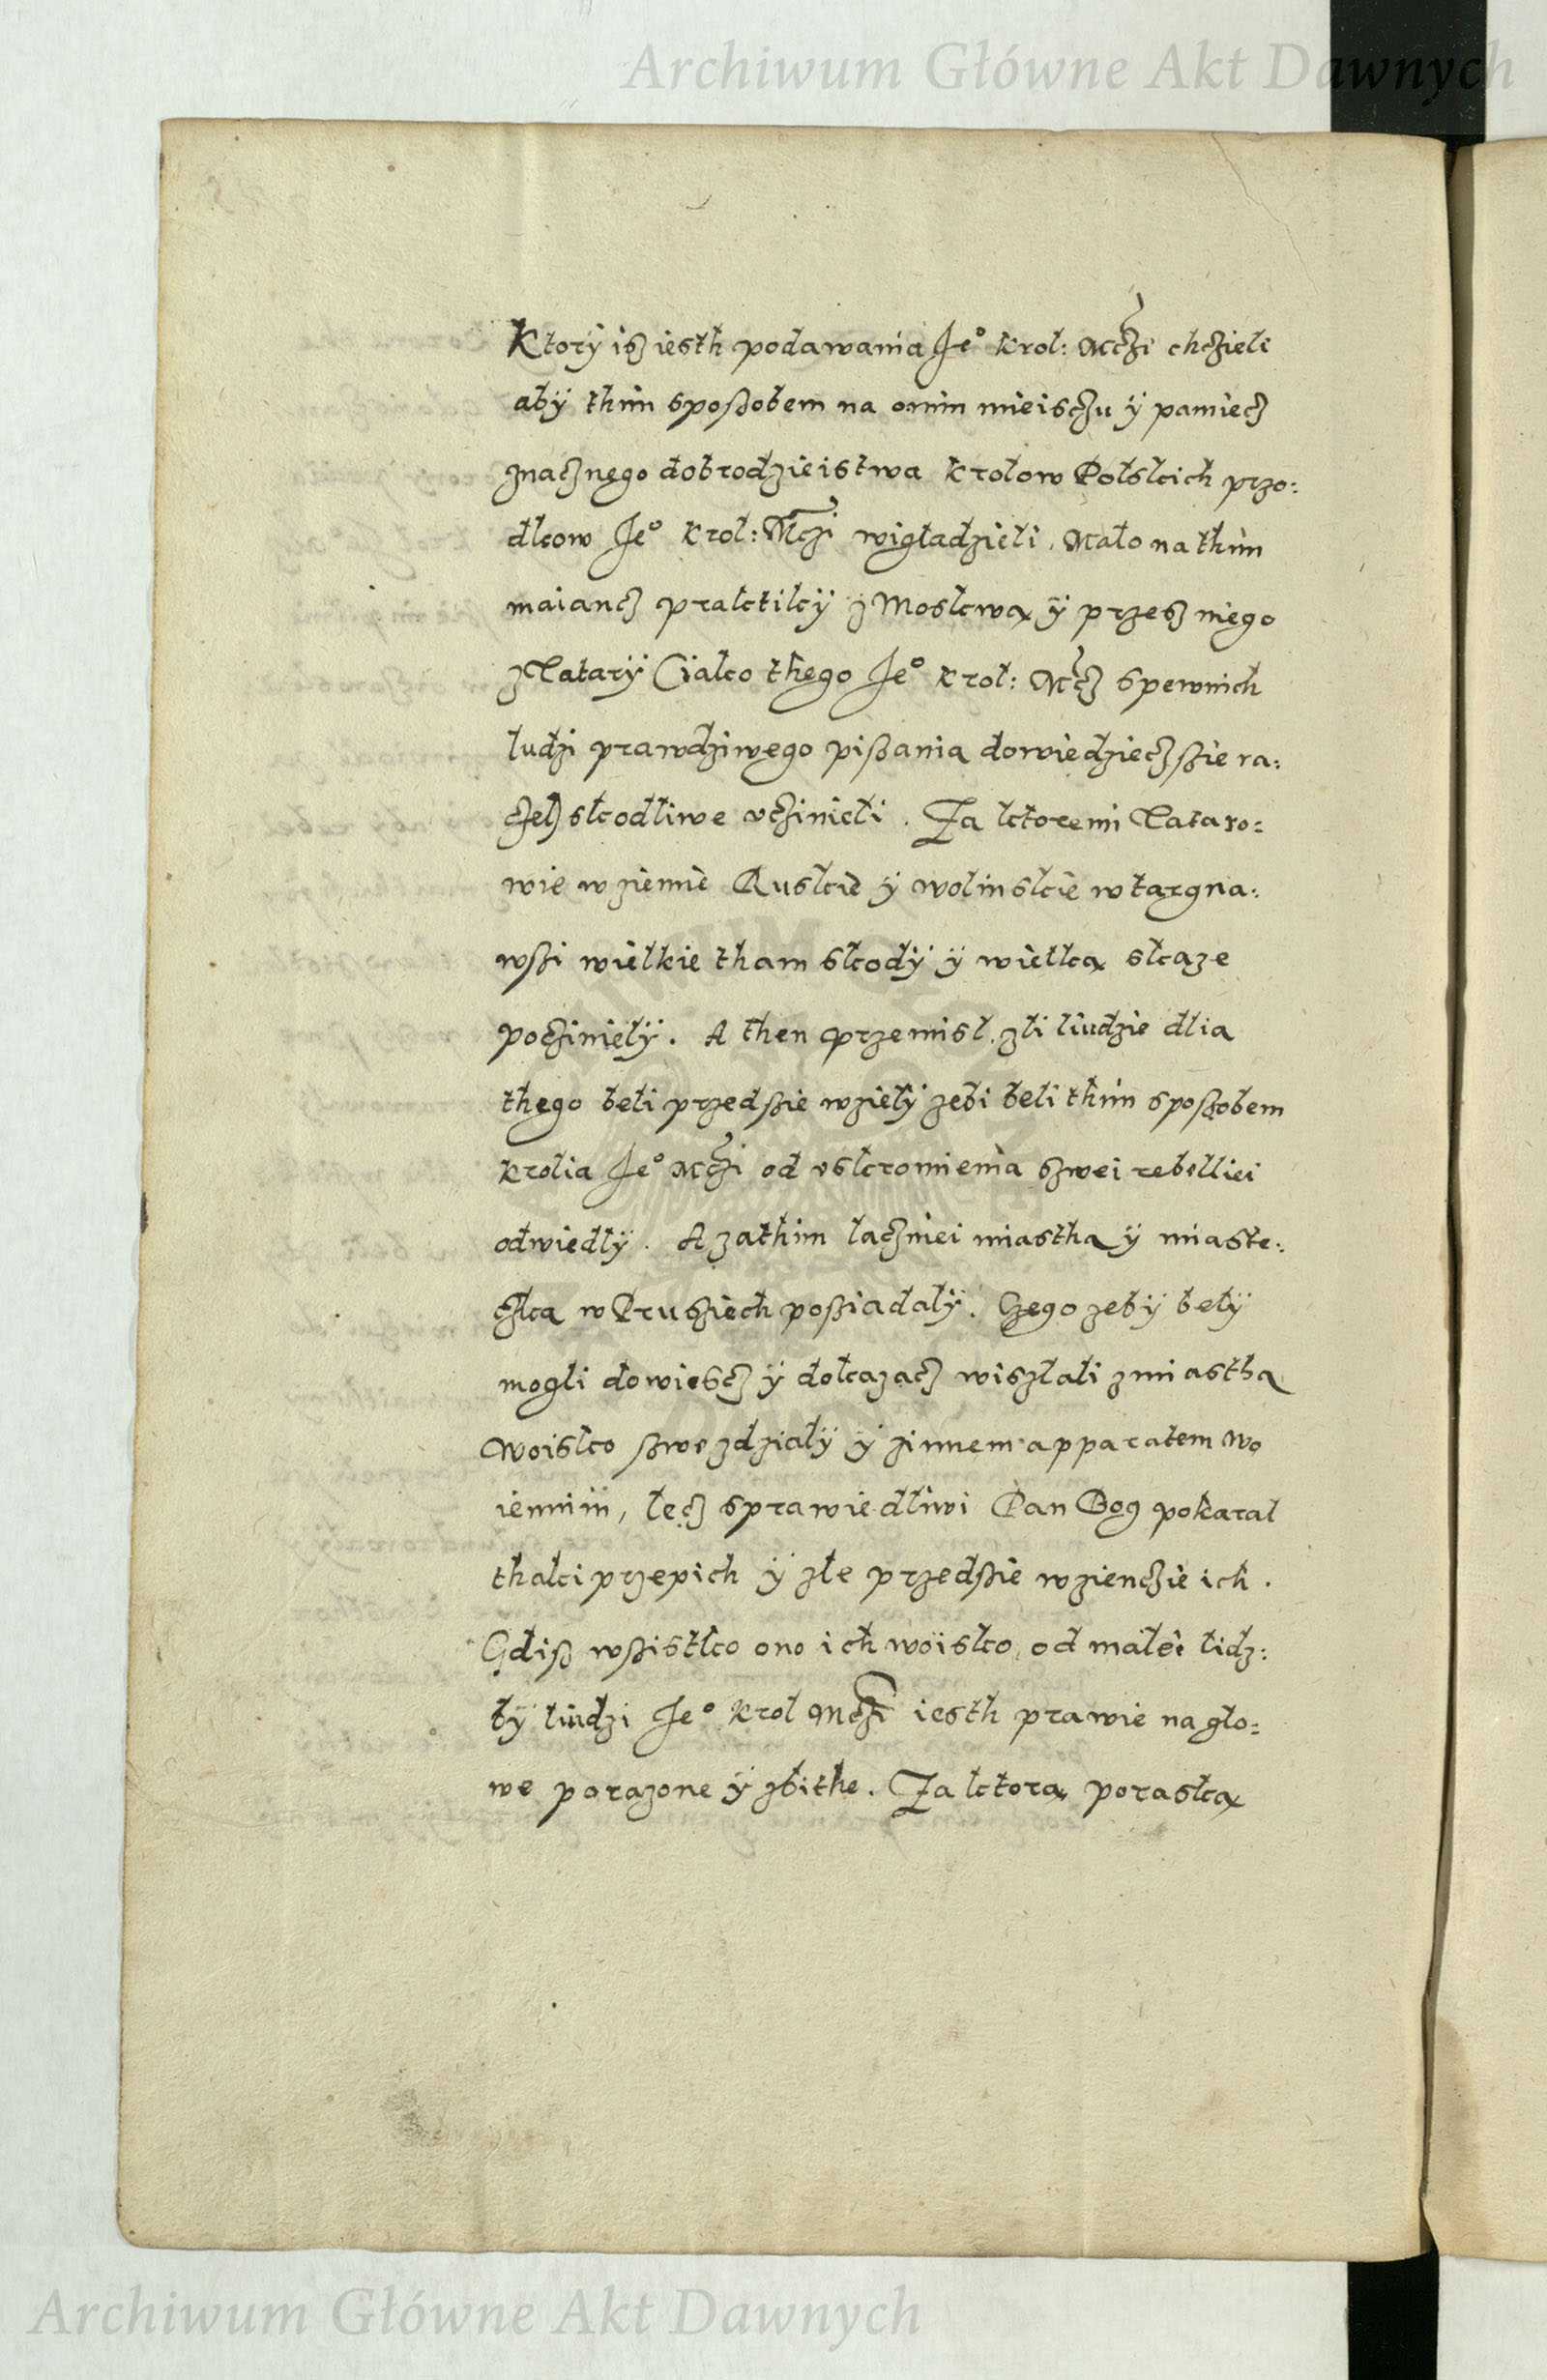 Archiwum Główne Akt Dawnych
Ktorÿ isz iesth podawania Je° Krol: Mczi chczieli
abÿ thim sposzobem na onim mieisczu ÿ pamiecz
znacznego dobrodzieistwa Krolow Polskich przo:
dkow Je° Krol: Mczi wigladzieli. Mało na thim
maiancz praktikÿ z Moskwą ÿ przesz niego
z Tatarÿ (iako thego Je° Krol: Mcz s pewnich
ludzi prawdziwego piszania dowiedziecz szie ra:
czel) skodliwe vczinieli. Za ktoremi Tataro:
wie w ziemie Ruskie ÿ wolinskie wtargna:
wszi wielkie tham skodÿ ÿ wielką skaze
poczinielÿ. A then przemisl zli liudzie dlia
thego beli przed szie wzielÿ zebi beli thim sposzobem
Krolia Je° Mczi od vskromienia szwei rebelliei
odwiedlÿ. A zathim lacznei miastha ÿ miaste:
czka w Prusziech posziadalÿ. Czego zebÿ belÿ
mogli dowiescz ÿ dokazacz wiszlali z miastha
woisko szwe z dzialÿ ÿ zinnem apparatem wo
iennim, lecz sprawiedliwi Pan Bog pokaral
thaki przepich ÿ zle przedszie wzienczie ich.
Gdisz wszistko ono ich woisko, od małei lidz:
bÿ liudzi Je° Krol Mczi iesth prawie na glo:
we porazone ÿ zbithe. Za ktorą poraską
Archiwum Główne Akt Dawnych